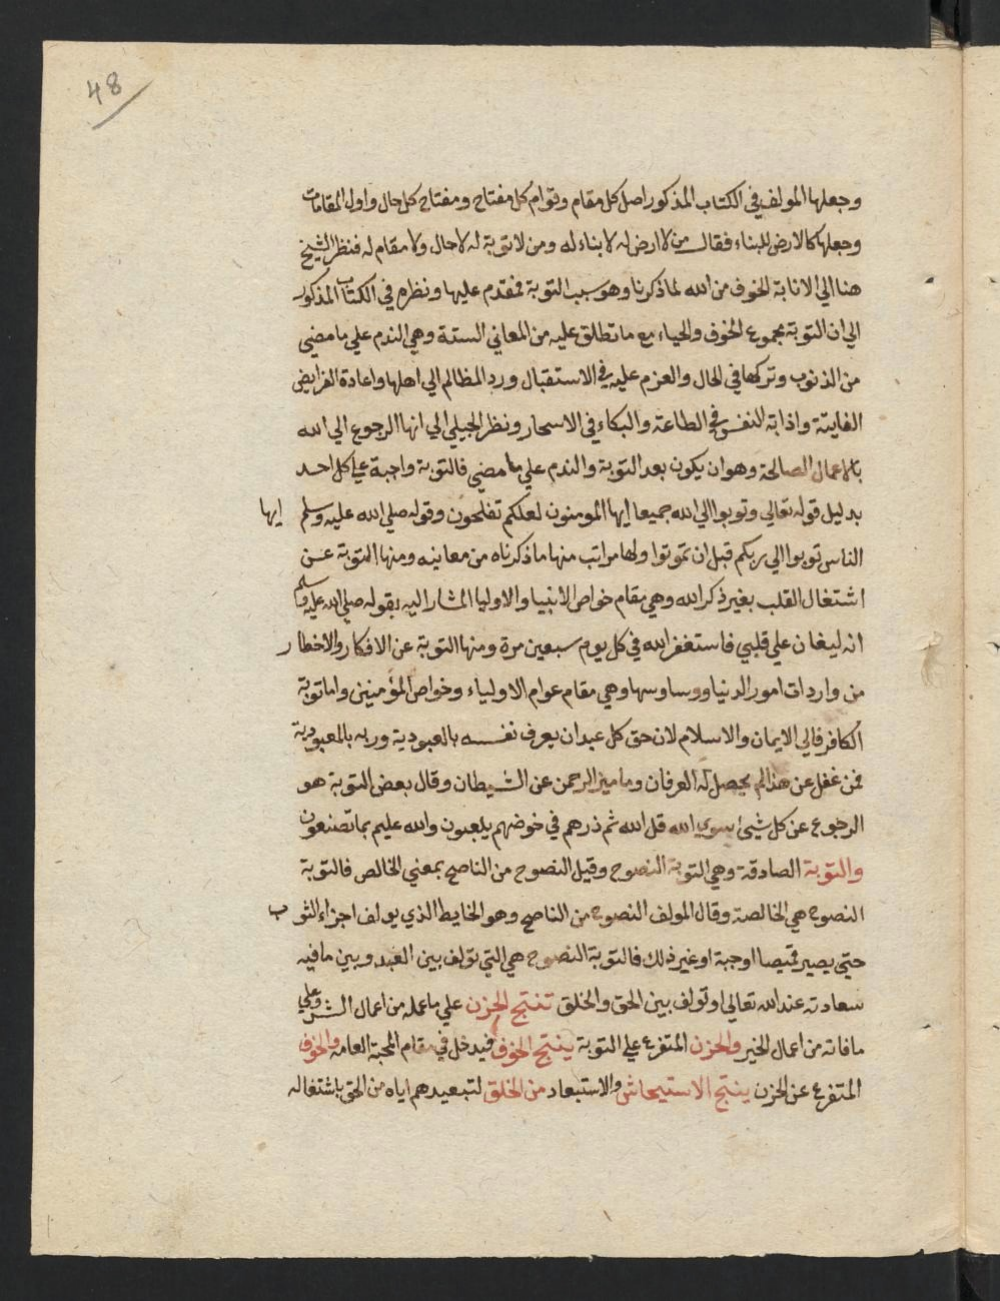 48
وجعلها المولف في الكتاب المذكور اصل كل مقام وقوام كل مفتاح ومفتاح كل حال واول المقامات
وجعلها كالارض للبناء فقال من لا ارض له لا بناء له ومن لا توبة له لا حال ولا مقام له فنظر الشيخ
هنا الي الانابة الخوف من الله لما ذكرنا وهو سبب التوبة فمقدم عليها ونظره في الكتاب المذكور
الي ان التوبة مجموع الخوف والحياء مع ما تطلق عليه من المعاني الستة وهي الندم علي ما مضي
من الذنوب وتركها في الحال والعزم عليه في الاستقبال ورد المظالم الي اهلها واعادة الفرايض
الفايتة واذابة النفس في الطاعة والبكاء في الاسحار ونظر الجيلي الي انها الرجوع الي الله
بالاعمال الصالحة وهو ان يكون بعد التوبة والندم علي ما مضي فالتوبة واجبة علي كل احد
بدليل قوله تعالي وتوبوا الي الله جميعا ايها المومنون لعلكم تفلحون وقوله صلي الله عليه وسلم ايها
الناس توبوا الي ربكم قبل ان تموتوا ولها مراتب منها ما ذكرناه من معانيه ومنها التوبة عن
اشتغال القلب بغير ذكر الله وهي مقام خواص الانبيا والاوليا المشار اليه بقوله صلي الله عليه وسلم
انه ليغان علي قلبي فاستغفر الله في كل يوم سبعين مرة ومنها التوبة عن الافكار والاخطار
من واردات امور الدنيا ووساوسها وهي مقام عوام الاولياء وخواص المؤمنين واما توبة
الكافر فالي الايمان والاسلام لان حق كل عبد ان يعرف نفسه بالعبودية وربه بالمعبودية
فمن غفل عن هذا لم يحصل له العرفان وما ميز الرحمن عن الشيطان وقال بعض التوبة هو
الرجوع عن كل شيئ سوي الله قل الله ثم ذرهم في خوضهم يلعبون والله عليم بما تصنعون
والتوبة الصادقة وهي التوبة النصوح وقيل النصوح من الناصح بمعني الخالص فالتوبة
النصوح هي الخالصة وقال المولف النصوح من الناصح وهو الخايط الذي يولف اجزاء الثوب
حتي يصير قميصا اوجبة او غير ذلك فالتوبة النصوح هي التي تولف بين العبد وبين ما فيه
سعادته عند الله تعالي او تولف بين الحق والخلق تنتج الحزن علي ما عمله من اعمال الشر وعلي
ما فاته من اعمال الخير والحزن المتفرع علي التوبة ينتج الخوف فيدخل في مقام المحبة العامه والخوف
المتفرع عن الحزن ينتج الاستيحاش والاستبعاد من الخلق لتبعيدهم اياه من الحق باشتغاله